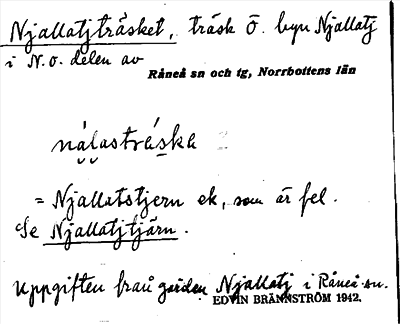 Njallatjträsket, träsk Ö. byn Njallatj
i N.o. delen av
Råneå sn och tg, Norrbottens län
nálastrǻska
= Njallatstjern ek, som är fel.
Se Njallatjtjärn.
Uppgiften från gården Njallatj i Råneå sn.
EDVIN BRÄNNSTRÖM 1942.